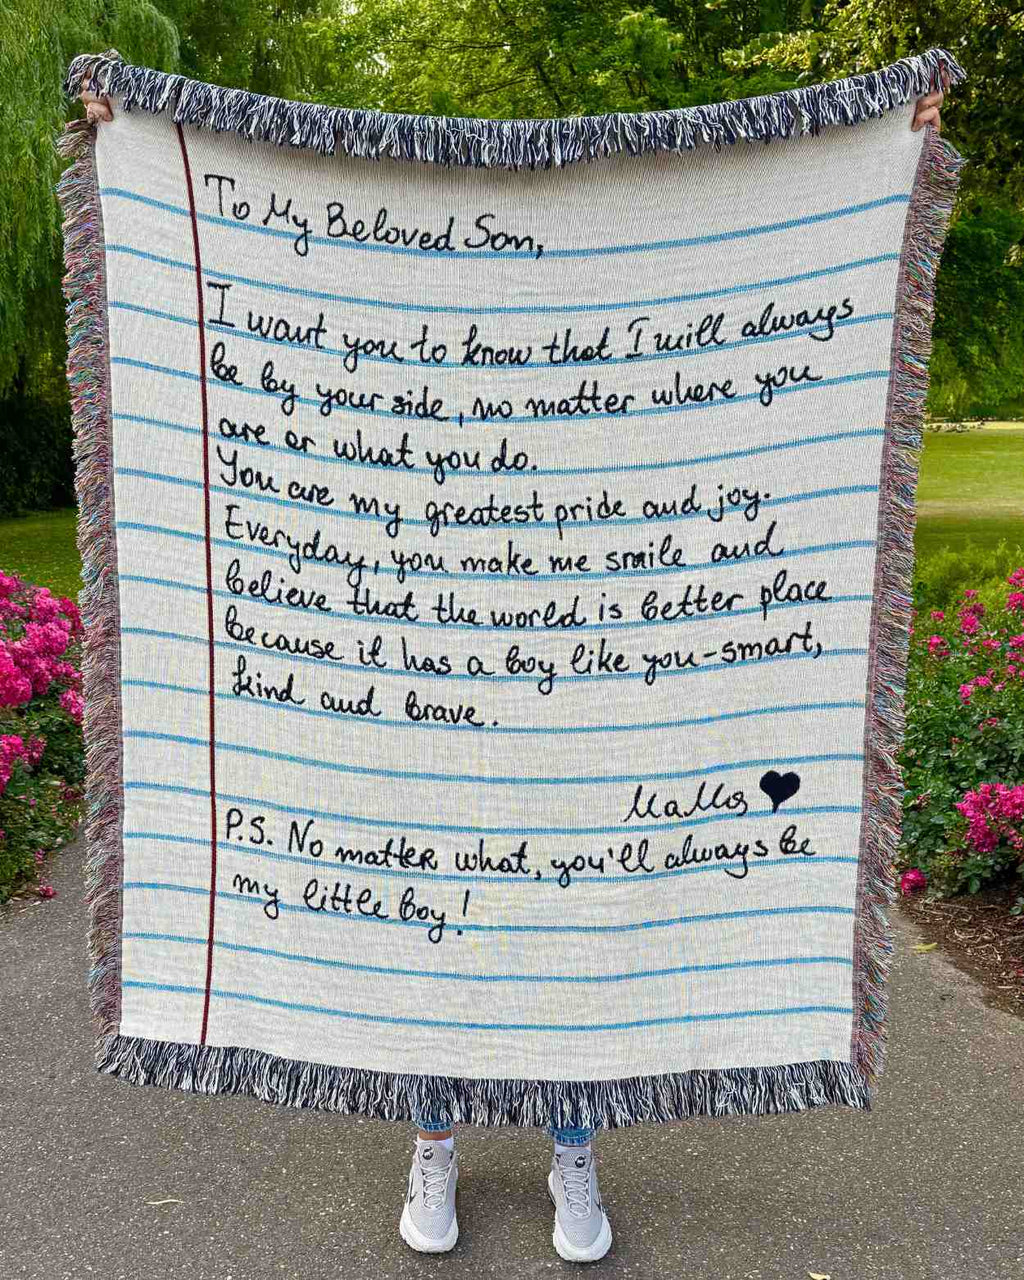 To My Beloved Son,
I want you to know that I will always
be by your side, no matter where you
are or what you do.
You are my greatest pride and joy.
Everyday, you make me smile and
believe that the world is better place
because it has a boy like you-smart,
kind and brave.
P.S. No matter what, you'll always be
my little boy!